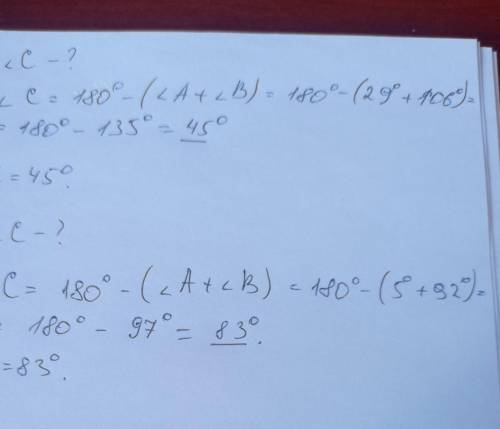 ∠C - ?
∠C = 180° - (∠A + ∠B) = 180° - (29° + 106°) =
= 180° - 135° = 45°
= 45°.
C - ?
C = 180° - (∠A + ∠B) = 180° - (5° + 92°) =
180° - 97° = 83°.
= 83°.